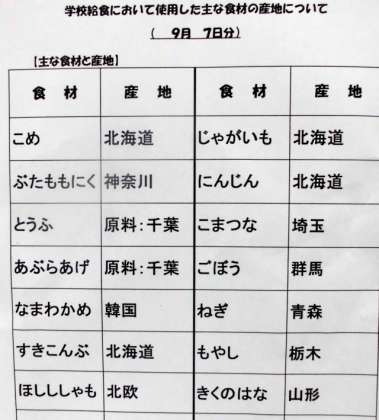 学校給食において使用した主な食材の産地について
( 9月 7日分)
【主な食材と産地】
食 材 産 地 食 材 産 地
こめ 北海道 じゃがいも 北海道
ぶたももにく 神奈川 にんじん 北海道
とうふ 原料:千葉 こまつな 埼玉
あぶらあげ 原料:千葉 ごぼう 群馬
なまわかめ 韓国 ねぎ 青森
すきこんぶ 北海道 もやし 栃木
ほしししゃも 北欧 きくのはな 山形